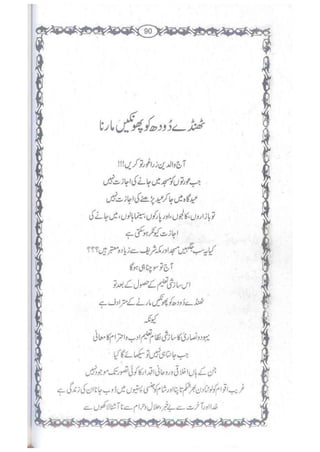 90
ٹھنڈے دُودھ کو پھونکیں مارنا
آج والدین زرا غور تو کریں!!!
جب عورتوں کو مسجد میں جانے کی اجازت نہیں
عید گاہ میں جا کر عید پڑھنے کی اجازت نہیں
تو بازاروں، کالجوں، اور پارکوں، سینما ہالوں، میں جانے کی
اجازت کیونکر ہو سکتی ہے
کیا یہ سب جگہیں مسجد اور مکہ شریف سے زیادہ معتبر ہیں؟؟؟
آج تو سوچنا ہی ہو گا
اس سازشی تعلیم کے حصول کے بعد تو
ٹھنڈے دُودھ کو پھونکیں مارنے کے مترادف ہے
کیونکہ
یہود و نصاریٰ کا سازشی نظام تعلیم ادب و احترام کا معانی
جب جانتا ہی نہیں تو سیکھائے گا کیا
جن کے ہاں اخلاقی و روحانی اقدار کا کوئی تصور تک موجود نہیں
غریب اقوام کو لوٹنا دن بھر ناچنا اور شام کو جنسی پستیوں میں ڈوب جانا ان کی زندگی ہے
خدا اور آخرت سے بے خبر، حلال و حرام سے نا آشنا لاکھوں سے